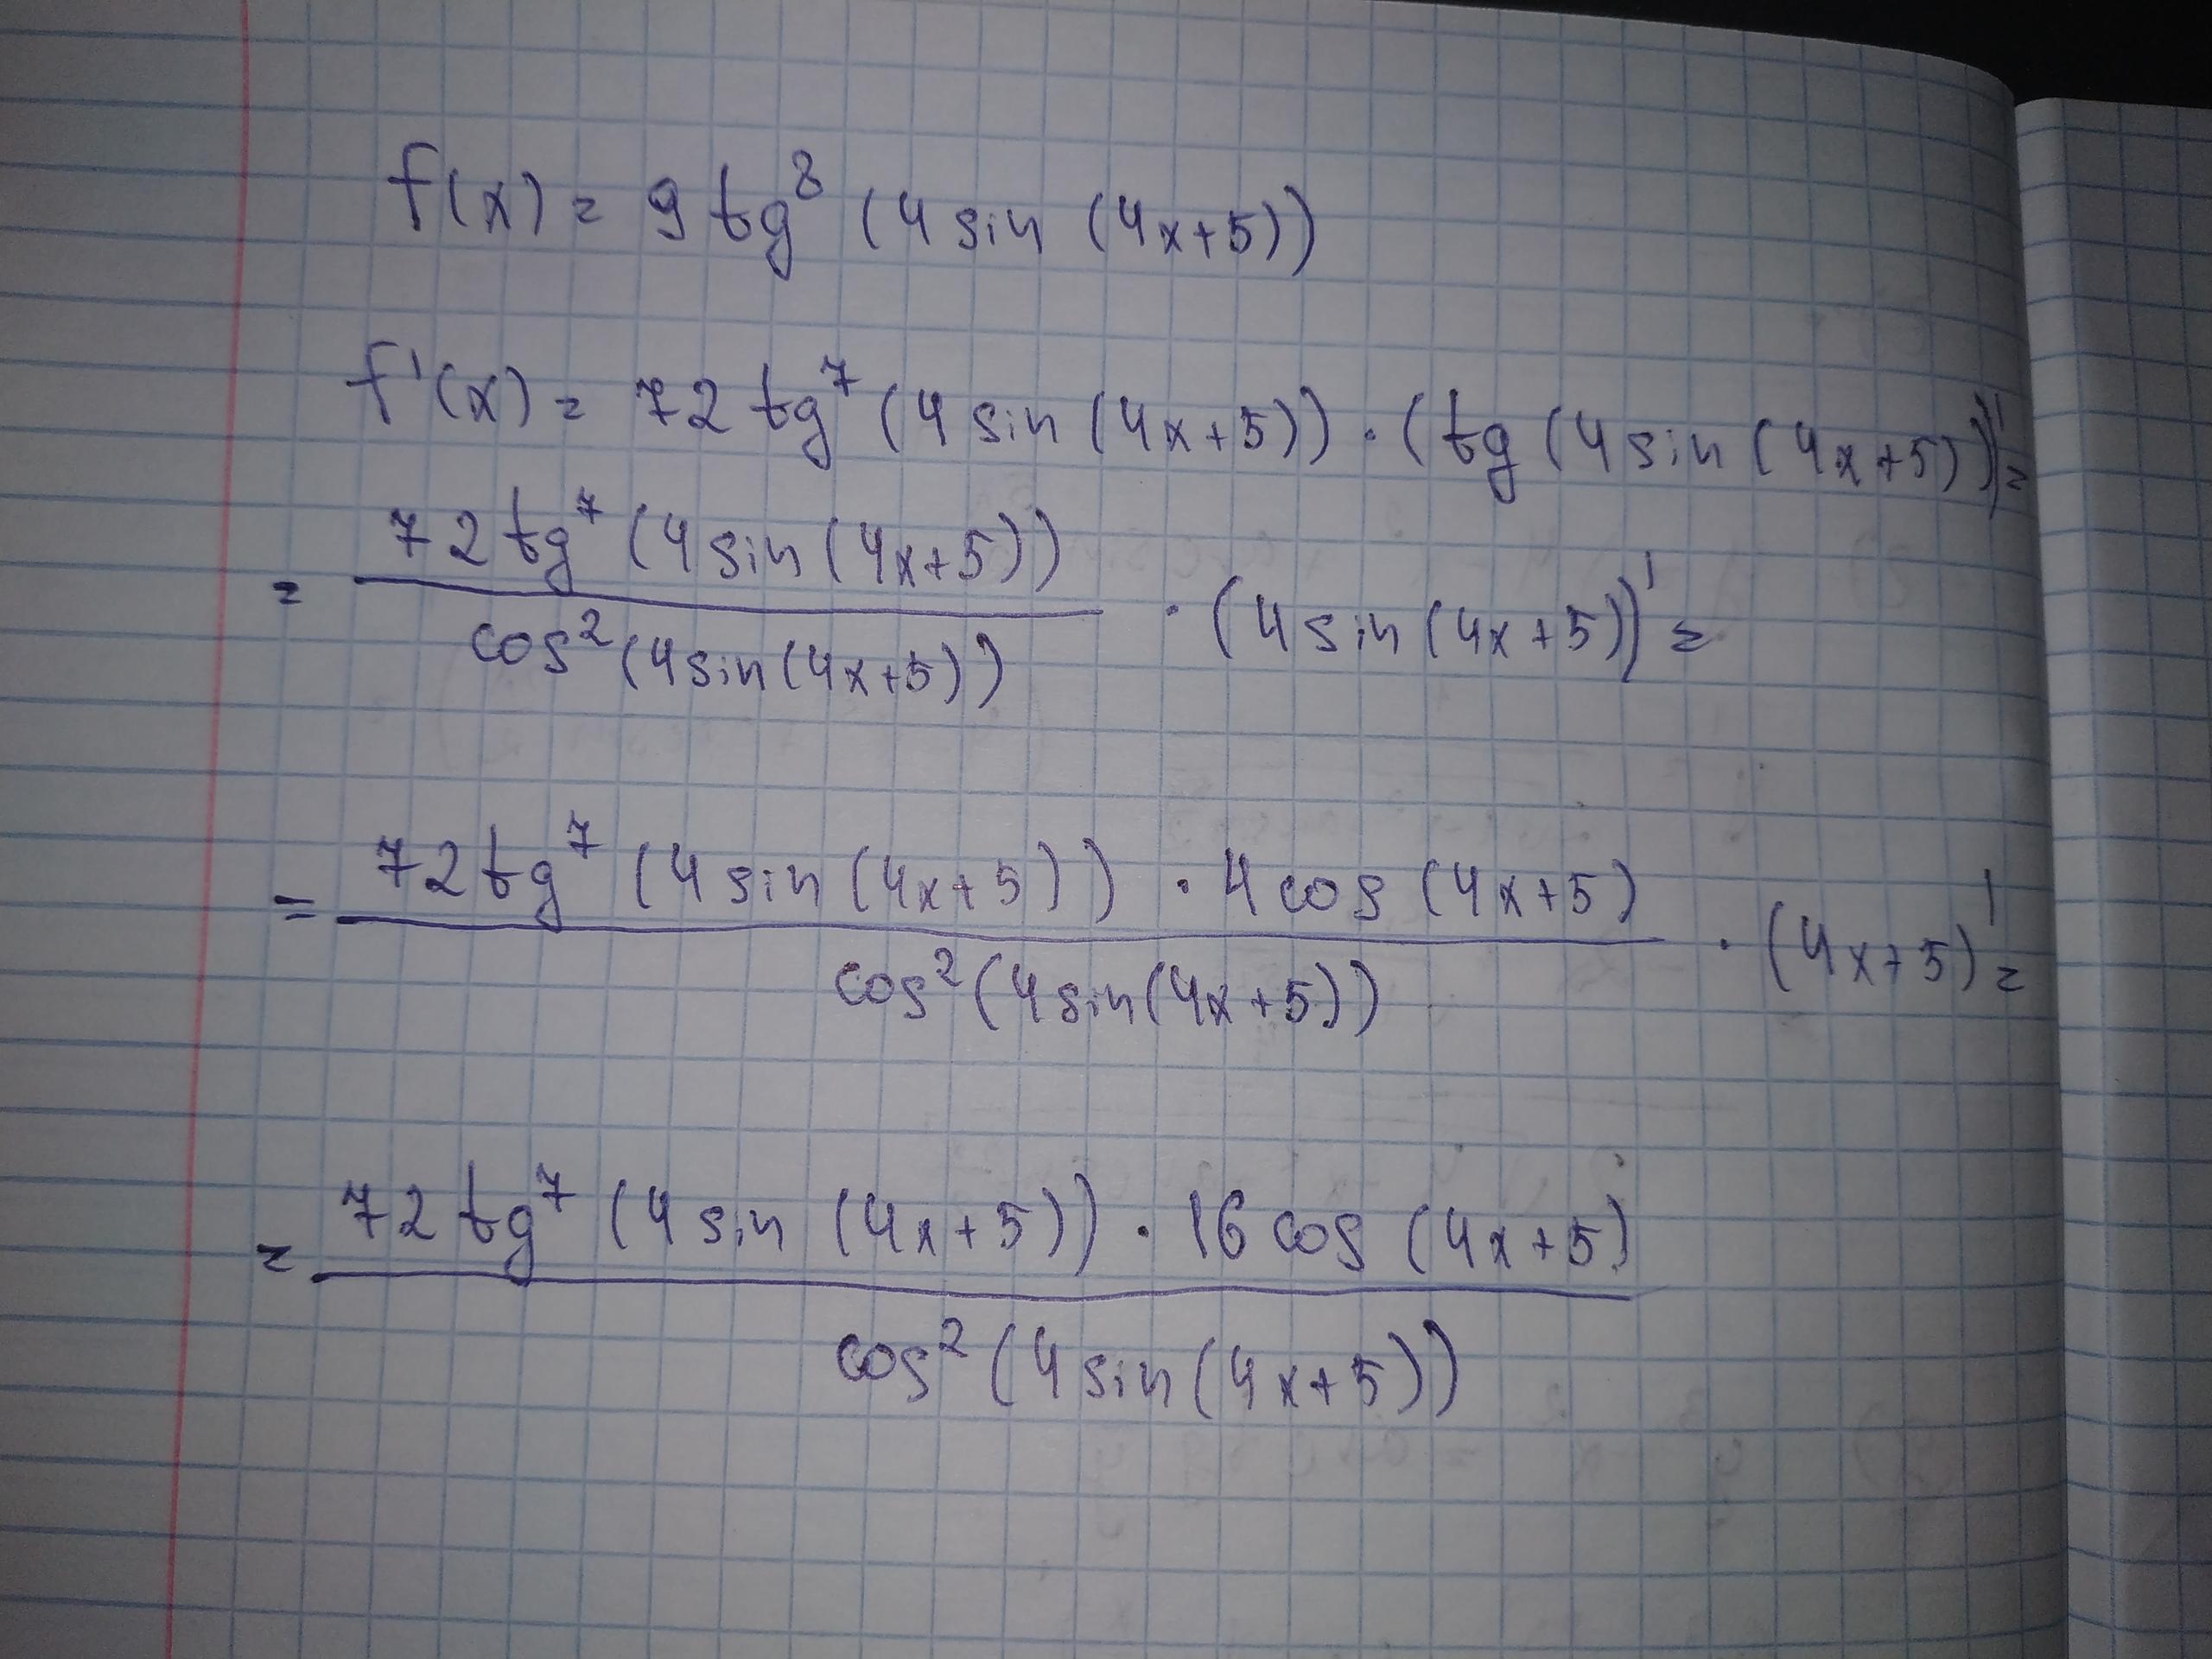 f(x) = 9 tg⁸ (4 sin (4x+5))
f'(x) = 72 tg⁷ (4 sin (4x+5)) · (tg (4 sin (4x+5)))' =
= 72 tg⁷ (4 sin (4x+5)) / cos² (4 sin (4x+5)) · (4 sin (4x+5))' =
= 72 tg⁷ (4 sin (4x+5)) · 4 cos (4x+5) / cos² (4 sin (4x+5)) · (4x+5)' =
= 72 tg⁷ (4 sin (4x+5)) · 16 cos (4x+5) / cos² (4 sin (4x+5))